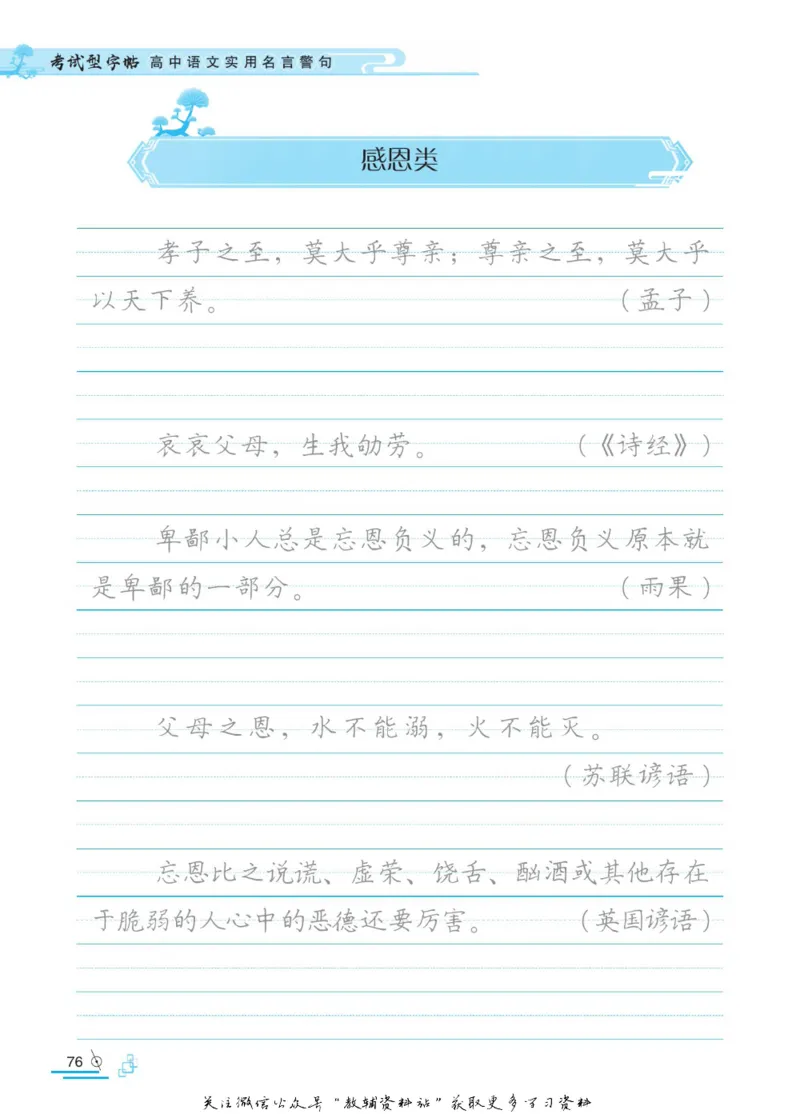 考试型字帖 高中语文实用名言警句
感恩类
孝子之至，莫大乎尊亲；尊亲之至，莫大乎
以天下养。（孟子）
哀哀父母，生我劬劳。（《诗经》）
卑鄙小人总是忘恩负义的，忘恩负义原本就
是卑鄙的一部分。（雨果）
父母之恩，水不能溺，火不能灭。
（苏联谚语）
忘恩比之说谎、虚荣、饶舌、酗酒或其他存在
于脆弱的人心中的恶德还要厉害。（英国谚语）
76
关注微信公众号“教辅资料站”获取更多学习资料